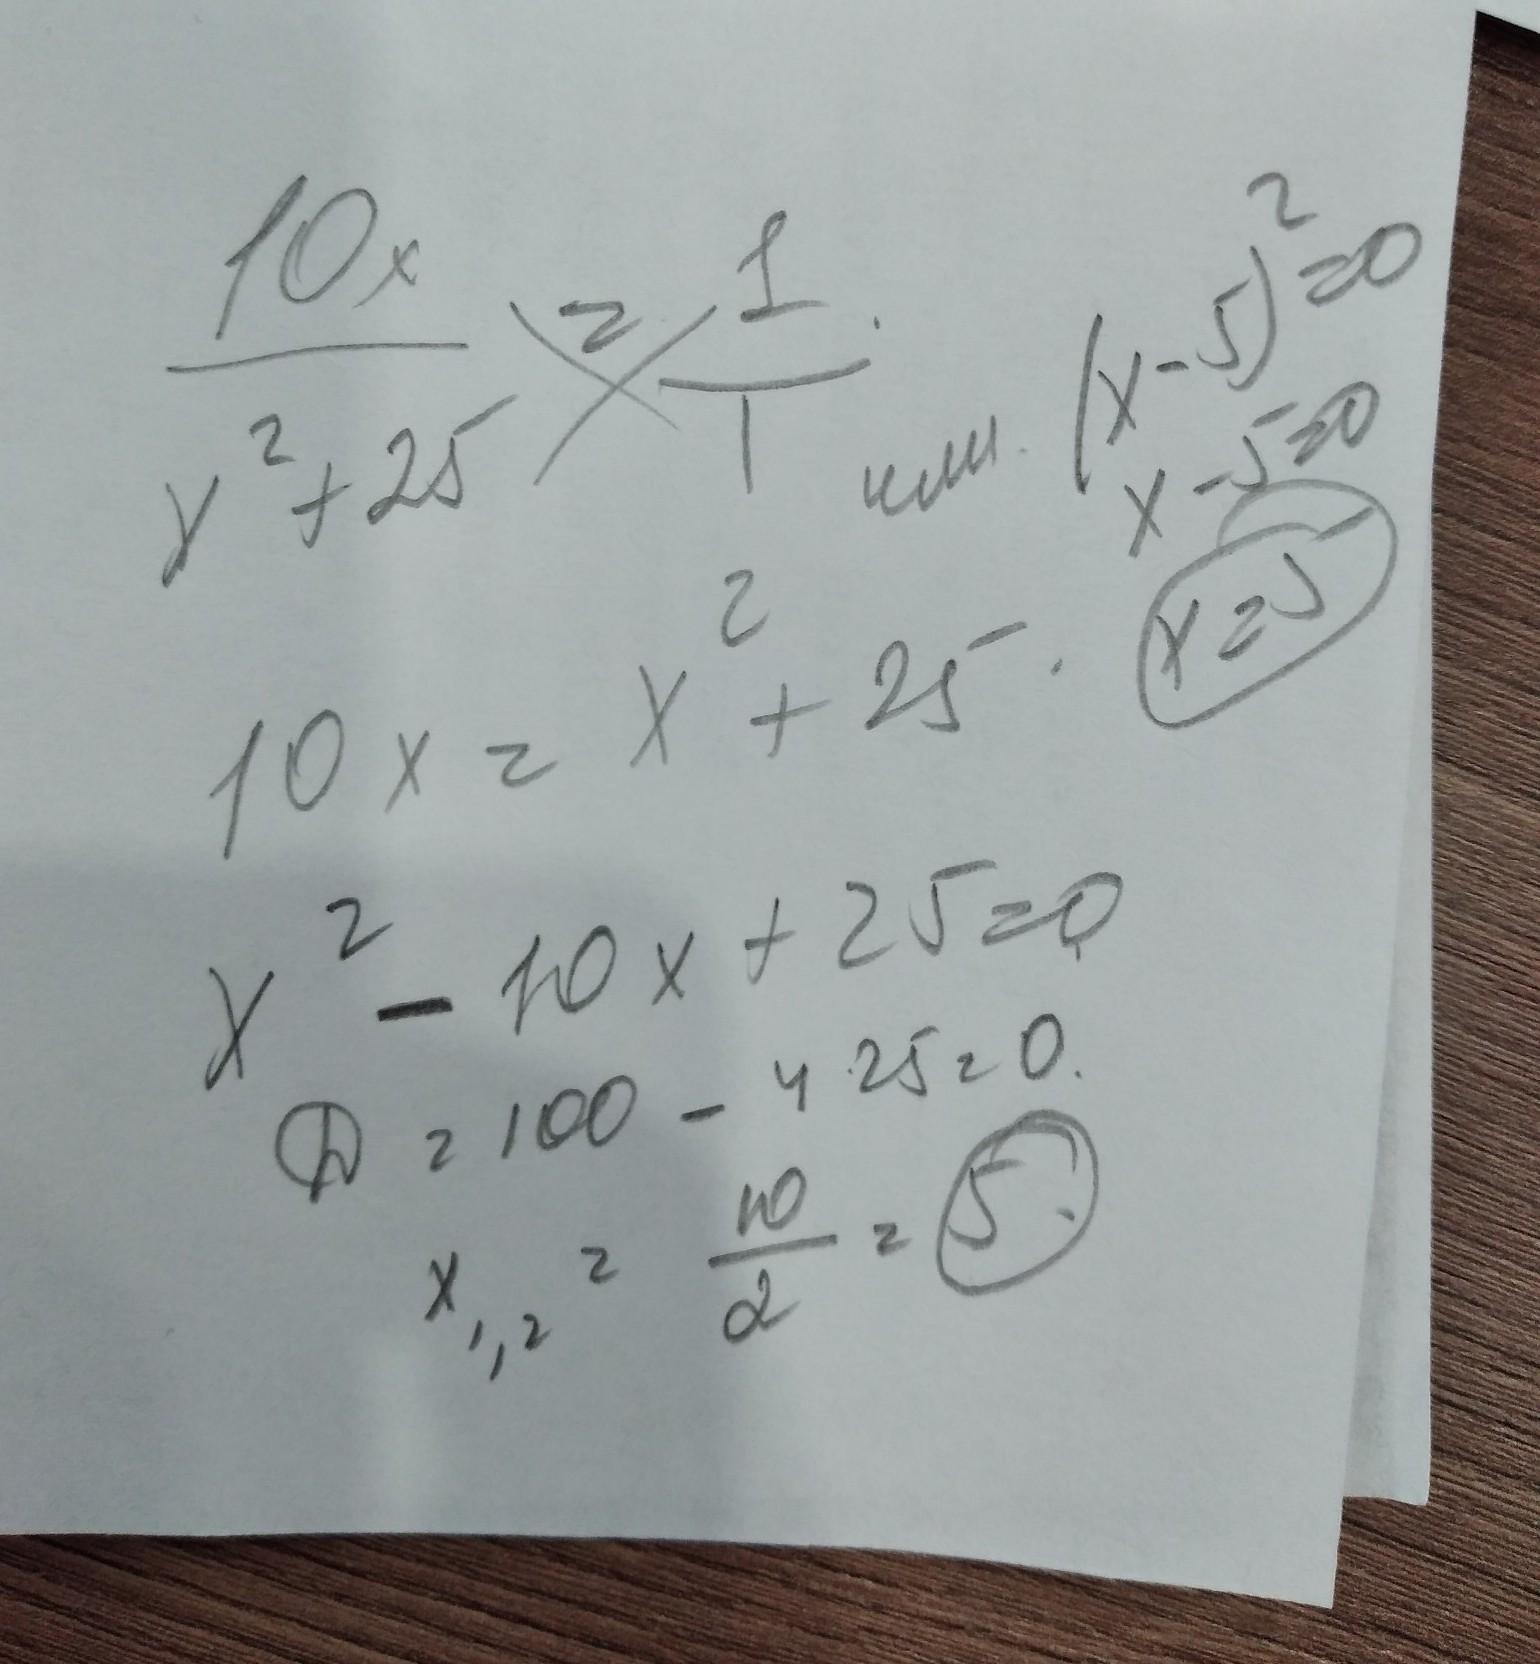 10x / x² + 25 = 1 / 1
10x = x² + 25.
x² - 10x + 25 = 0
D = 100 - 4·25 = 0.
x₁,₂ = 10 / 2 = 5.
или. (x - 5)² = 0
x - 5 = 0
x = 5